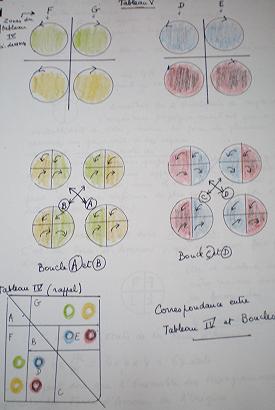 Tableau V
Zones du
tableau
IV
ci-dessous
F G D E
B A
C D
Boucles A et B
Boucles C et D
Tableau IV (rappel)
G
A
F B E
D
C
Correspondance entre
Tableau IV et Boucles